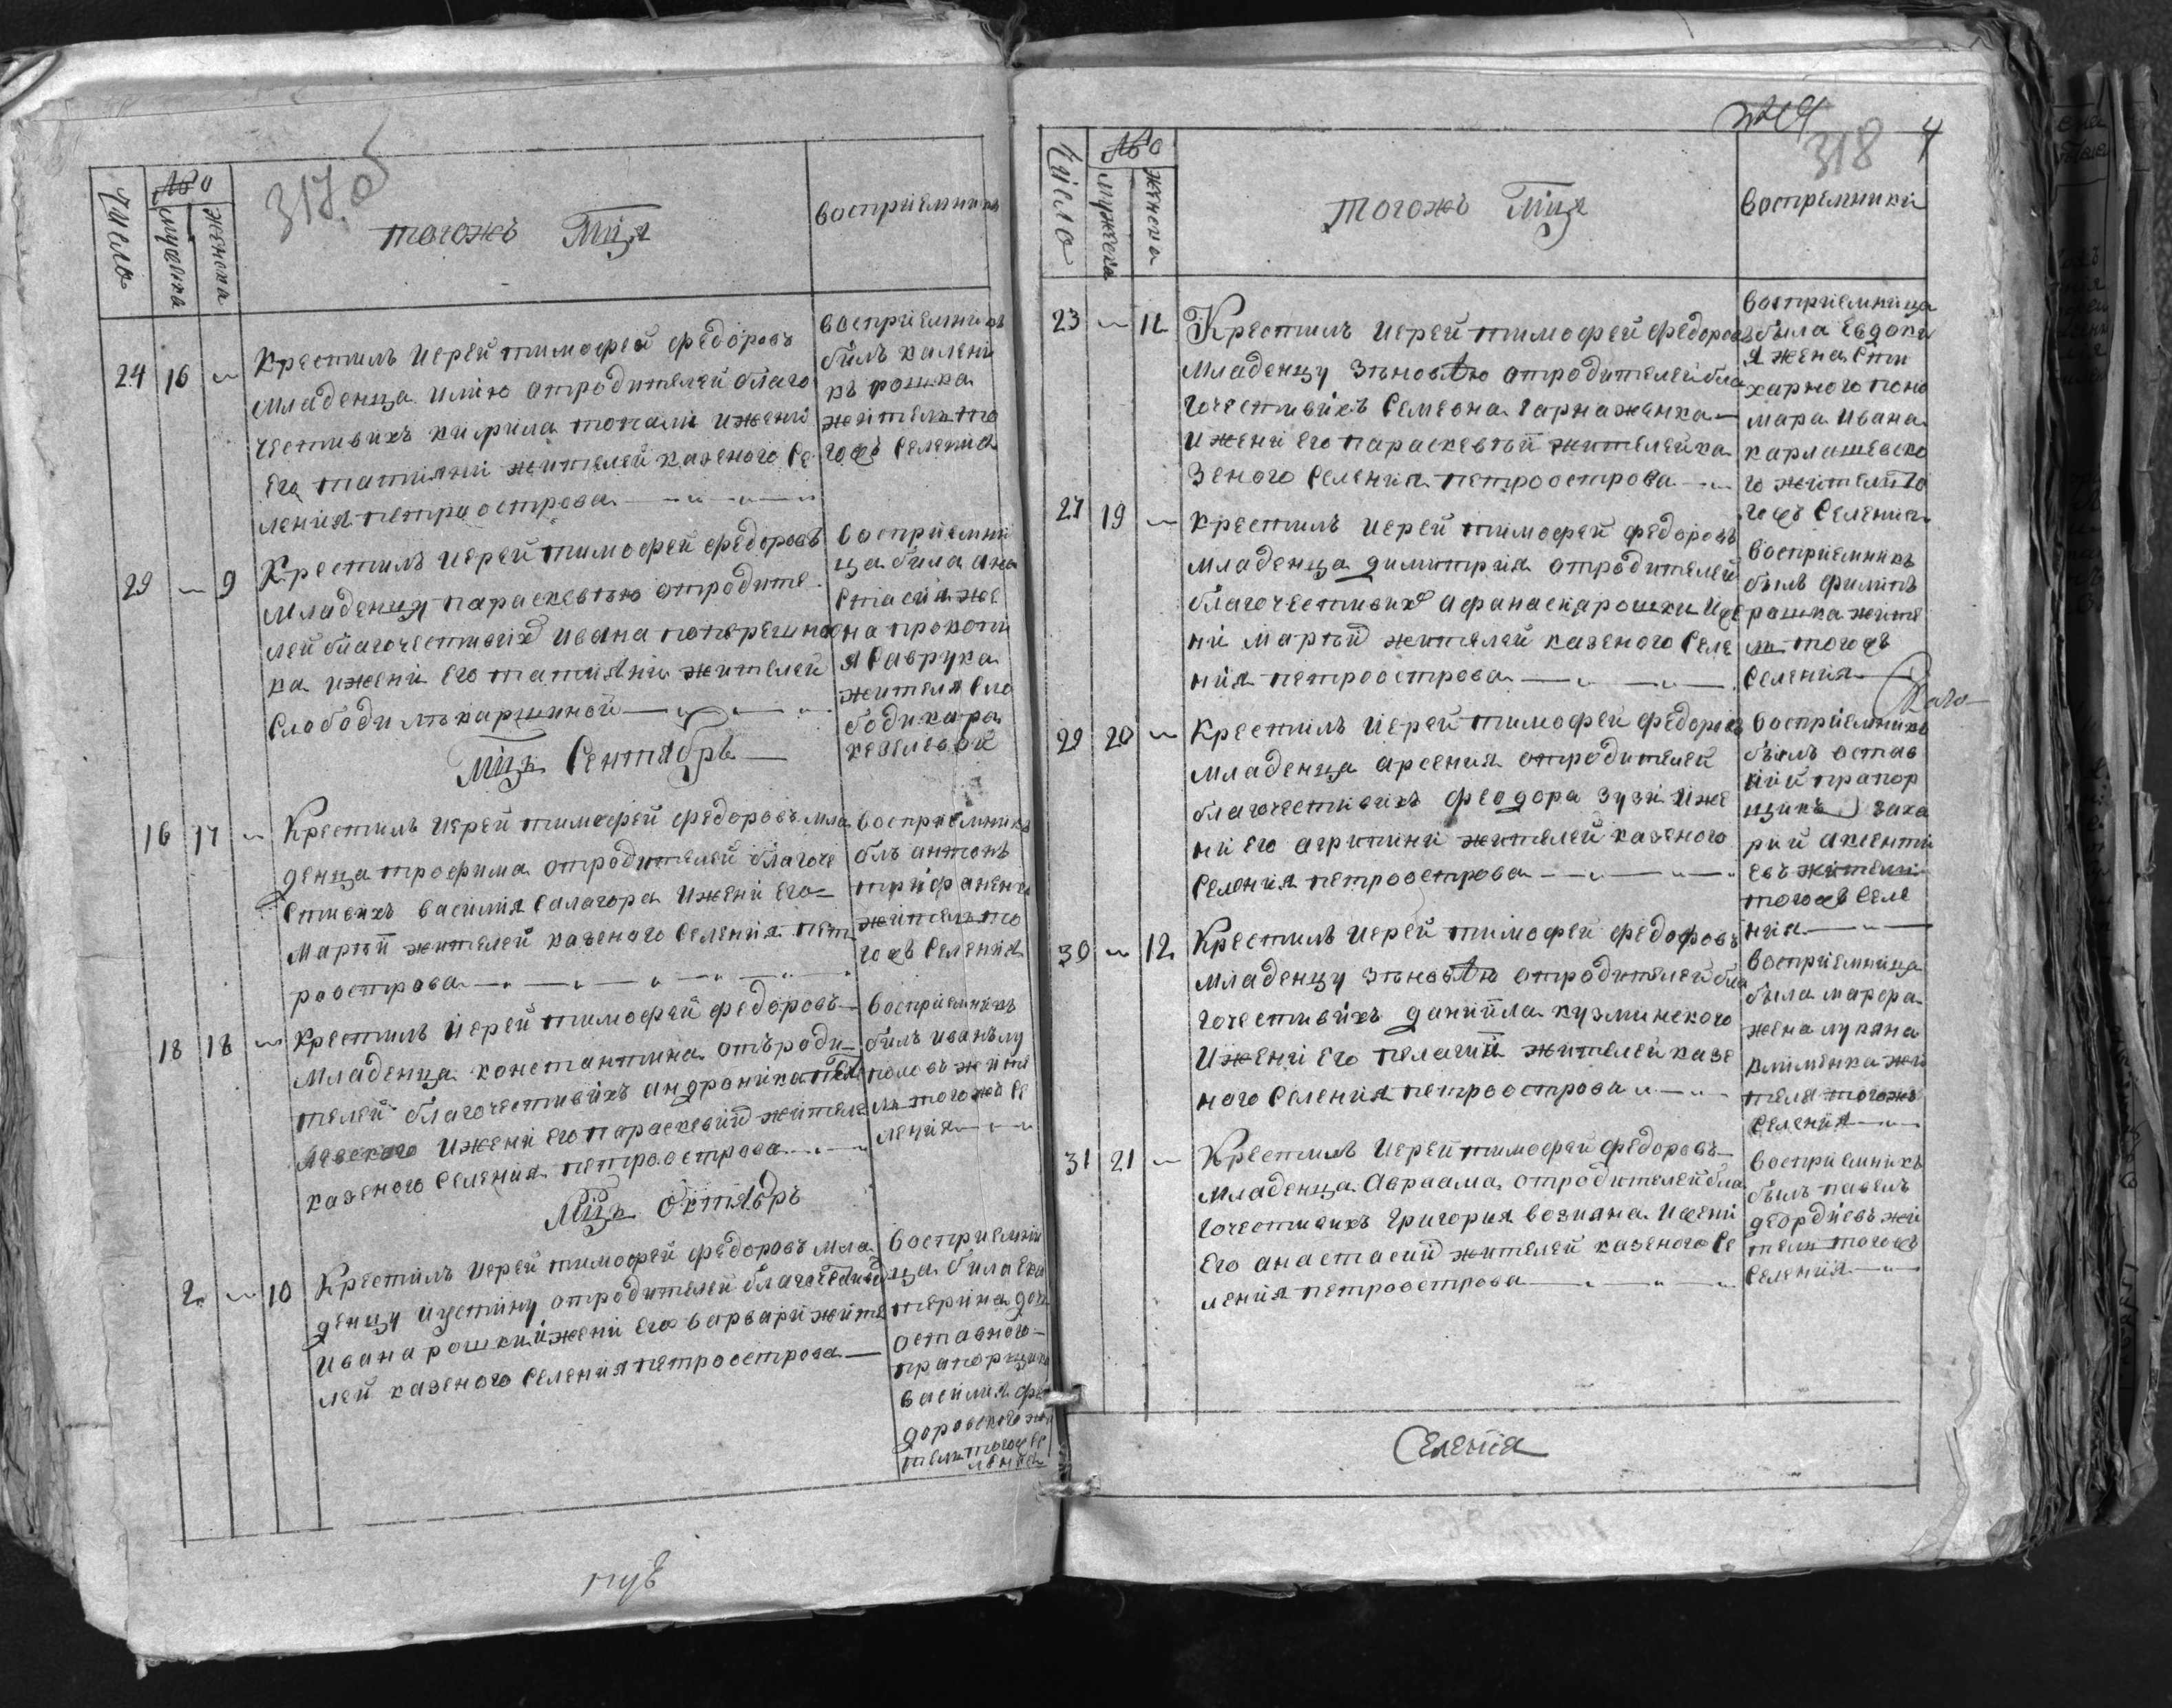 317 об
Число
№о
мужеска
женска
тогожъ Мца
восприемники
24 16
Крестилъ Иерей тимофей федоровъ
младенца илию отродителей благо
честивихъ кирила топали ижени
его татияни жителей казеного се
ления петроострова
восприемникъ
билъ калени
къ рошка
житель то
гожъ селения
29 9
Крестилъ Иерей тимофей федоровъ
младенцу параскевию отродите
лей благочестивих ивана поперешня
ка ижени его татияни жителей
слободи
восприемни
ца била ана
стасия же
на прокопи
я саврука
жителя сло
боди
Мцъ Сентябръ
16 17
Крестилъ Иерей тимофей федоровъ мла
денца трофима отродителей благоче
стивихъ василия салагора ижени его
марѣи жителей казеного селения пет
роострова
восприемникъ
блъ антонъ
житель то
гожъ селения
18 18
Крестилъ Иерей тимофей федоровъ
младенца константина отъроди
телей благочестивихъ андроника
ижени его параскевии жителе
казеного селения петроострова
восприемникъ
билъ иванъ лу
половъ жите
ль тогожъ се
ления
Мцъ Октябръ
2 10
Крестилъ Иерей тимофей федоровъ мла
денцу иустину отродителей благочестивих
ивана рошки ижени его варвари жите
лей казеного селения петроострова
восприемни
ца била ека
терина дочь
оставного
прапорщика
василия фе
доровского жи
тель тогожъ се
ления
318
4
Число
№о
мужеска
женска
тогожъ Мца
Воспремники
23 11
Крестилъ Иерей тимофей федоровъ
младенцу зѣновѣю отродителей бла
гочестивихъ семеона гарнаженка
ижени его параскевѣи жителей ка
зеного селения петроострова
восприемница
была Евдоки
я жена сти
харного поно
мара ивана
карлашевско
го жители то
гожъ селения
27 19
Крестилъ Иерей тимофей федоровъ
младенца димитрия отродителей
благочестивих афанасия рошки иже
ни марѣи жителей казеного селе
ния петроострова
восприемникъ
былъ филипъ
рашка жите
ль тогожъ
селения
29 20
Крестилъ Иерей тимофей федоровъ
младенца арсения отродителей
благочестивихъ феодора зузи иже
ни его агрипини жителей казеного
селения петроострова
восприемникъ
былъ остав
ний прапор
щикъ заха
рий аксенти
евъ жители
тогожъ селе
ния
30 12
Крестилъ Иерей тимофей федоровъ
младенцу зѣновѣю отродителей бла
гочестивихъ даниила кузминского
ижени его пелагии жителей казе
ного селения петроострова
восприемница
была марфа
жена лукяна
клименка жи
теля тогожъ
селения
31 21
Крестилъ Иерей тимофей федоровъ
младенца авраама отродителей бла
гочестивихъ григория возиана ижени
его анастасии жителей казеного се
ления петроострова
восприемникъ
былъ павелъ
деордиевъ жи
тель тогожъ
селения
Селения